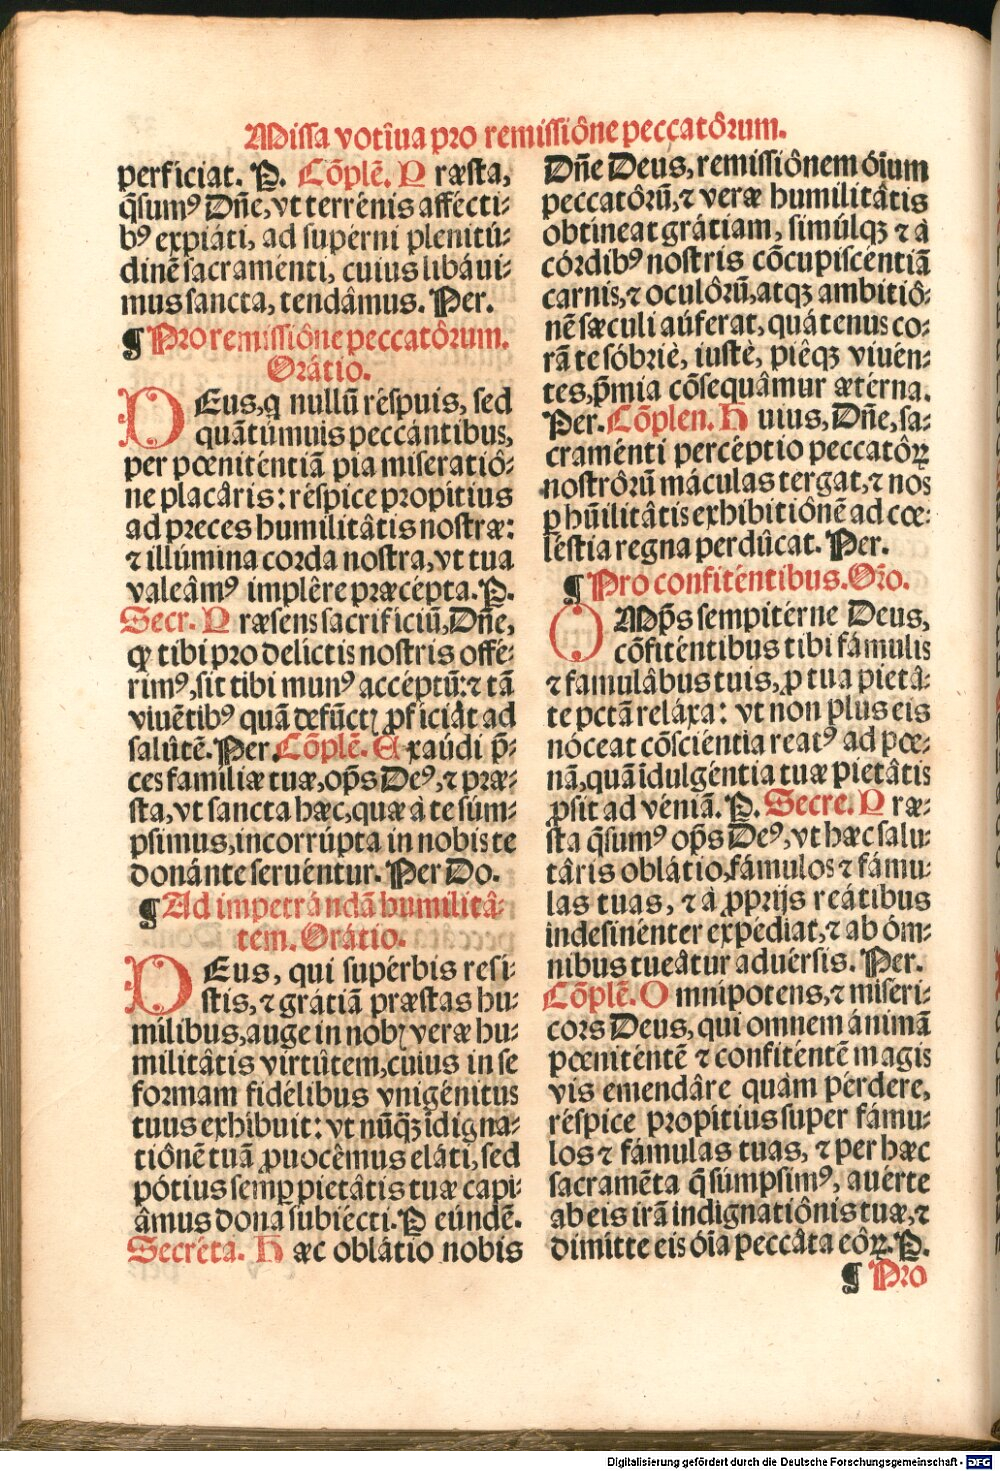 Missa votîua pro remissiône peccatôrum.
perficiat. P. Cõplẽ. Præsta,
q̃sumꝰ Dñe, vt terrénis affécti-
bꝰ expiáti, ad supérni plenitú-
dinẽ sacraménti, cuius libáui-
mus sancta, tendâmus. Per.
¶ Pro remissiône peccatôrum.
Orátio.
DEus, q nullũ réspuis, sed
quãtúmuis peccántibus,
per pœniténtiã pia miseratiô-
ne placâris: réspice propítius
ad preces humilitâtis nostræ:
⁊ illúmina corda nostra, vt tua
valeâmꝰ implêre præcépta. P.
Secr. Præsens sacrificiũ, Dñe,
qđ tibi pro delictis nostris offé-
rimꝰ, sit tibi munꝰ accéptũ: ⁊ tã
viuẽtibꝰ quã defũctꝭ ꝓficiât ad
salûtẽ. Per. Cõplẽ. Exaúdi p̃-
ces famíliæ tuæ, op̃s Deꝰ, ⁊ præ-
sta, vt sancta hæc, quæ à te súm-
psimus, incorrúpta in nobis te
donánte seruéntur. Per Do.
¶ Ad impetrándã humilitâ-
tem. Orátio.
DEus, qui supérbis resí-
stis, ⁊ grátiã præstas hu-
mílibus, auge in nobꝭ veræ hu-
militâtis virtûtem, cuius in se
formam fidélibus vnigénitus
tuus exhíbuit: vt nũq̃ꝫ ĩdigna-
tiônẽ tuã ꝓuocêmus eláti, sed
pótius semꝑ pietâtis tuæ capi-
âmus dona subiécti. P eúndẽ.
Secréta. Hæc oblátio nobis
Dñe Deus, remissiônem óĩum
peccatôrũ, ⁊ veræ humilitâtis
obtíneat grátiam, simúlqꝫ ⁊ à
córdibꝰ nostris cõcupiscéntiã
carnis, ⁊ oculôrũ, atqꝫ ambitiô-
nẽ sæculi aúferat, quátenus co-
rã te sóbriè, iustè, piêqꝫ viuén-
tes, p̃mia cõsequâmur ætérna.
Per. Cõplen. Huius, Dñe, sa-
craménti percéptio peccatôꝝ
nostrôrũ máculas tergat, ⁊ nos
ꝑ hũilitâtis exhibitiônẽ ad cœ-
léstia regna perdûcat. Per.
¶ Pro confiténtibus. Or̃o.
OMp̃s sempitérne Deus,
cõfiténtibus tibi fámulis
⁊ famulâbus tuis, ꝑ tua pietâ-
te pctã reláxa: vt non plus eis
nóceat cõsciéntia reatꝰ ad pœ-
nã, quã ĩdulgéntia tuæ pietâtis
ꝓsit ad véniã. P. Secre. Præ-
sta q̃sumꝰ op̃s Deꝰ, vt hæc salu-
târis oblátio, fámulos ⁊ fámu-
las tuas, ⁊ à ꝓprijs reátibus
indesinénter expédiat, ⁊ ab óm-
nibus tueâtur aduérsis. Per.
Cõplẽ. Omnípotens, ⁊ miséri-
cors Deus, qui omnem ánimã
pœniténtẽ ⁊ confiténtẽ magis
vis emendâre quàm pérdere,
réspice propítius super fámu-
los ⁊ fámulas tuas, ⁊ per hæc
sacramẽta q̃ súmpsimꝰ, auérte
ab eis irã indignatiônis tuæ, ⁊
dimítte eis óĩa peccâta eôꝝ. P.
¶ Pro
Digitalisierung gefördert durch die Deutsche Forschungsgemeinschaft - DFG